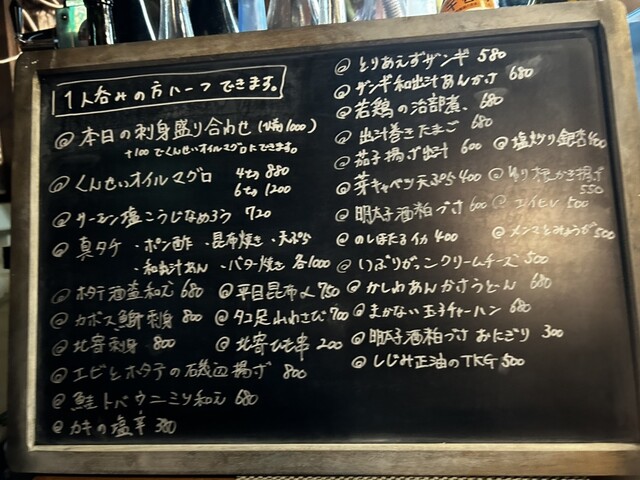 1人呑みの方ハーフできます。
@ 本日の刺身盛り合わせ (1000)
+100でくんせいオイルマグロにできます。
@ くんせいオイルマグロ 4切 880
6切 1200
@ サーモン塩こうじなめろう 720
@ 真タチ ・ポン酢 ・昆布焼き ・天ぷら
・和出汁あん ・バター焼き 各1000
@ ホタテ酒盗和え 680 @ 平目昆布〆 750
@ カボス鰤刺身 800 @ タコ足山わさび 700
@ 北寄刺身 800 @ 北寄ひも串 200
@ エビとホタテの磯辺揚げ 800
@ 鮭トバウニミソ和え 680
@ カキの塩辛 380
@ とりあえずザンギ 580
@ ザンギ和出汁あんかけ 680
@ 若鶏の治部煮 680
@ 出汁巻きたまご 680
@ 茄子揚げ出汁 600 @ 塩炒り銀杏 400
@ 芽キャベツ天ぷら 400 @ かき揚げ
550
@ 明太子酒粕づけ 600 @ エイヒレ 500
@ のしほたるイカ 400 @ メンマとみょうが 500
@ いぶりがっこクリームチーズ 500
@ かしわあんかけうどん 680
@ まかない玉子チャーハン 680
@ 明太子酒粕づけおにぎり 300
@ しじみ正油のTKG 500